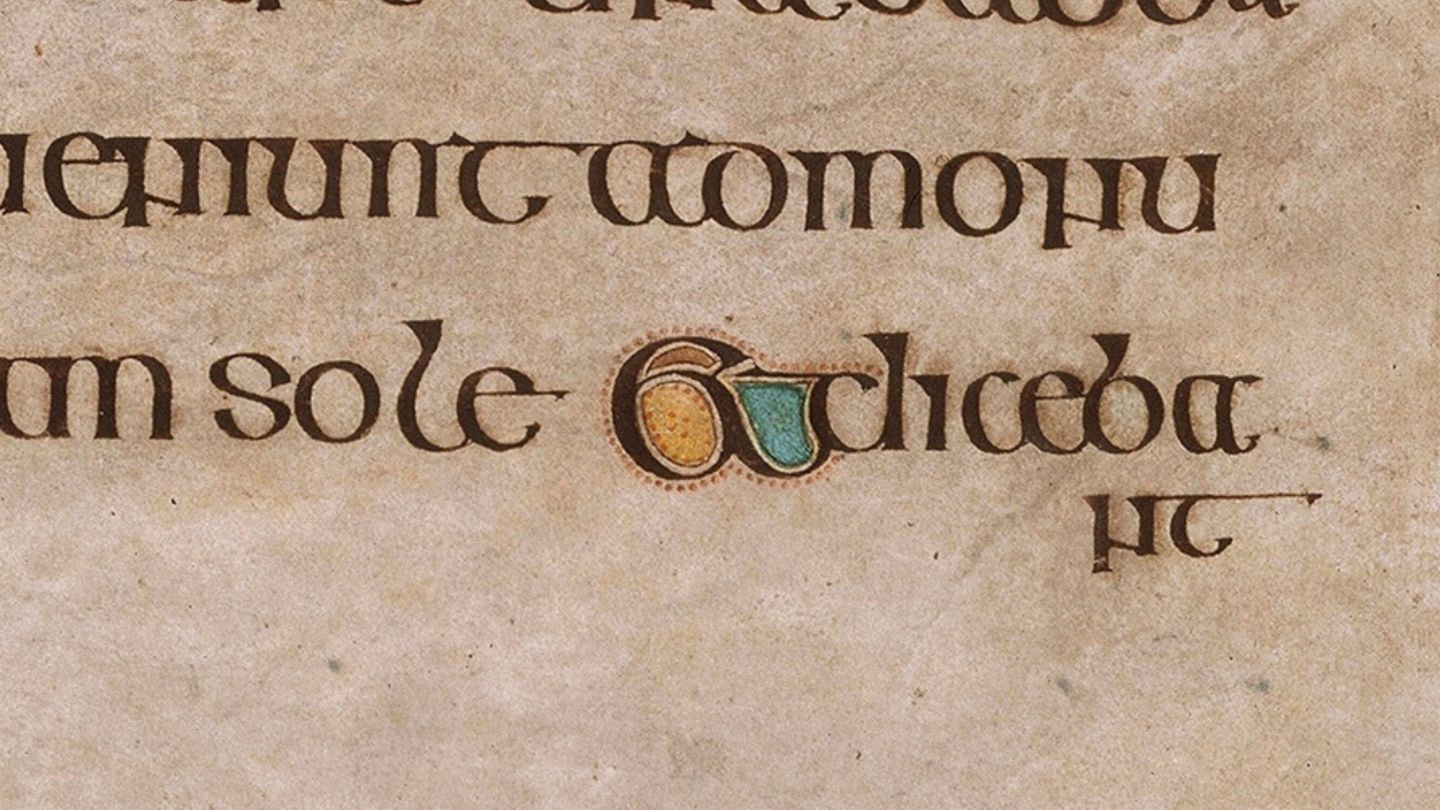 ueniunt admonu
am sole Et diceba
nt